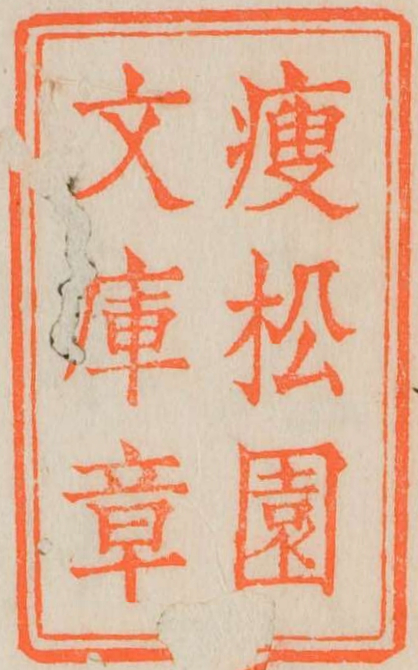 痩松園
文庫章